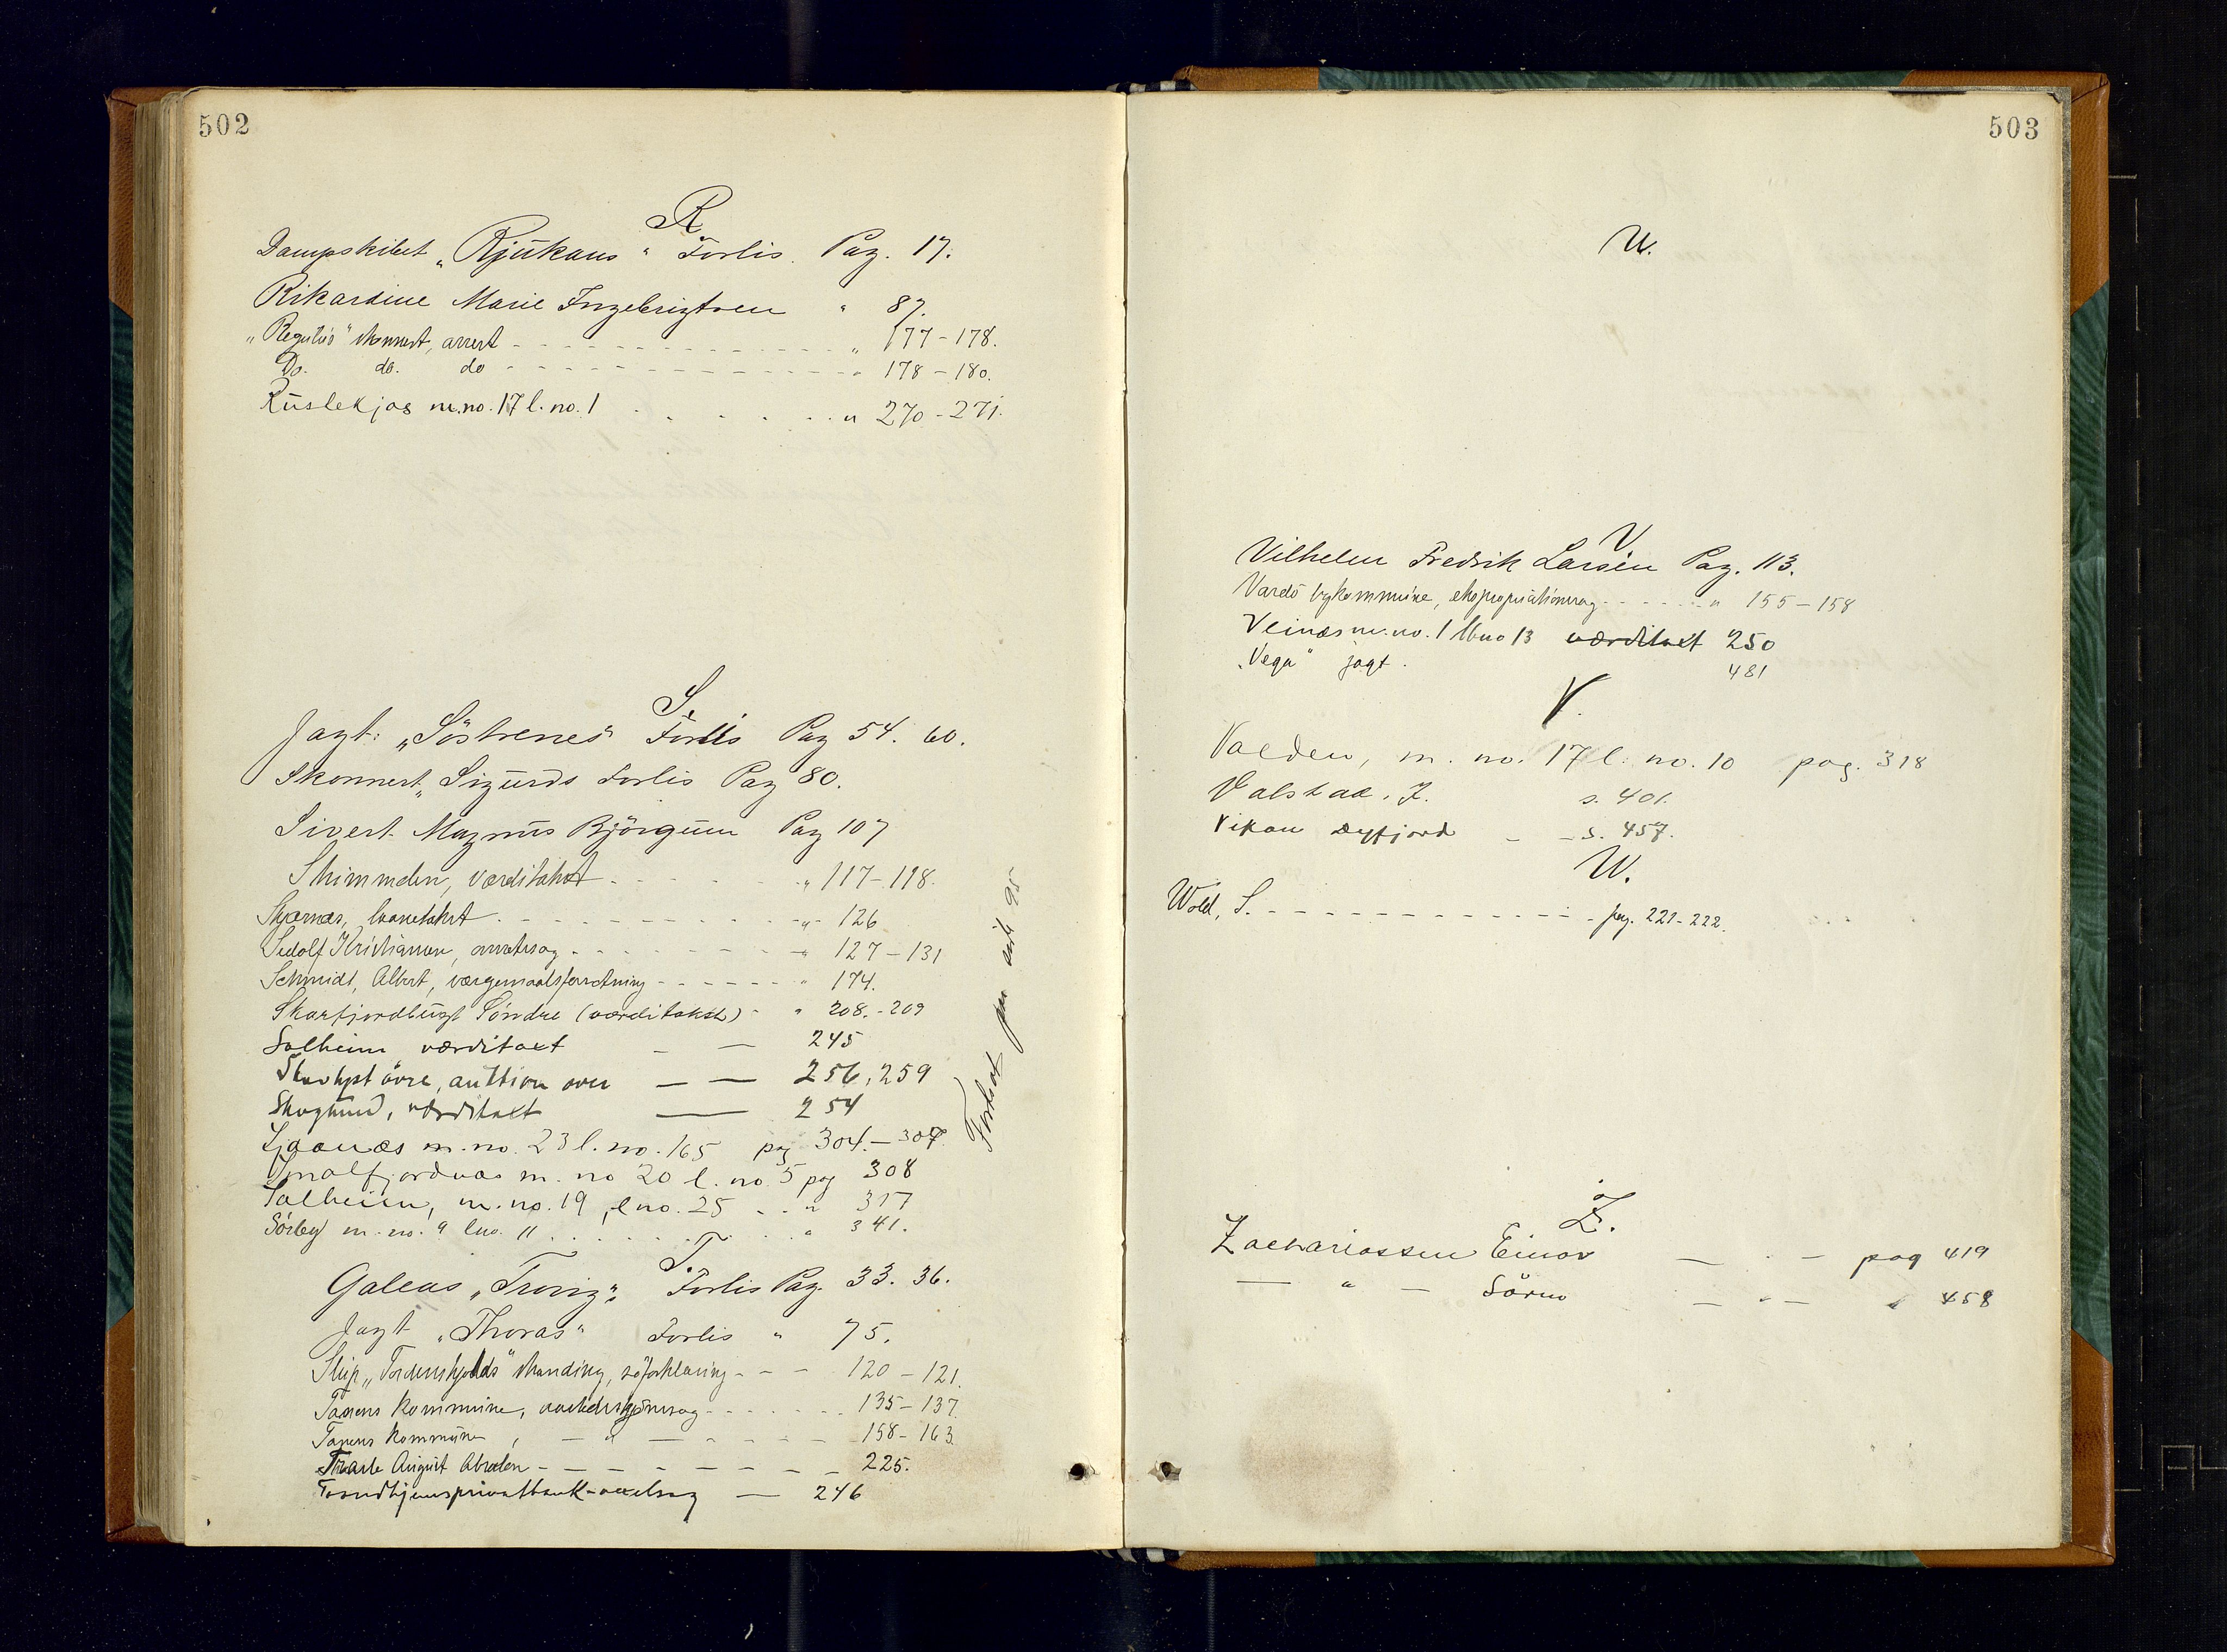 502
R.
Dampskibet „Rjukans" Forlis. Pag. 17.
Rikardine Marie Ingebrigtsen " 87.
„Regulus" skonnert, arrest - - - " 177-178.
Do. do. do - - - " 178-180.
Ruslekjos m.no. 17 l.no. 1 . . . " 270-271.
S.
Jagt: „Söstrenes" Forlis Pag 54. 60.
Skonnert „Sigurds Forlis Pag 80.
Sivert Magnus Björgum Pag 107
værditakst - - - " 117-118.
Skjernæs, - - - " 126
Kristiansen, - - - " 127-131
Schmidt, Albert, værgemaalsforretning - - - " 174.
Skarfjordbugt Söndre (værditakst) - " 208.-209
Solheim værditaxt - — 245
övre, auktion over — — 256, 259
Skoglund, værditaxt — 254
m.no. 23 l.no. 165 pag 304-307.
Smalfjordnæs m. no 20 l. no. 5 pag 308
Solheim, m.no. 19, l no. 25 . . " 317
Sörby m.no. 9 lno. 11 . . . . " 341.
Fortsat
T.
Galeas „Tronig" Forlis Pag. 33. 36.
Jagt „Thoras" Forlis " 75.
Slup „Tordenskjolds" stranding, söforklaring - - - 120-121.
Tanens kommune, - - - 135-137.
Tanens kommune, — " — - - - 158-163.
August - - - 225.
Trondhjemsprivatbank - — 246
503
U.
V
Vilhelm Fredrik Larsen Pag. 113.
Vardö bykommune, ekspropriationssag - - - " 155-158
Veinæs m.no. 1 lbno 13 værditaxt 250
„Vega" jagt. 481
V.
m. no. 17 l. no. 10 pag. 318
Valstad. J. s. 401.
Vikan Dyfjord - - s. 457.
W.
Wold, S. - - - pag. 221-222.
Z.
Zachariassen Einar — . — pag 419
— " — Sören — " — " 458